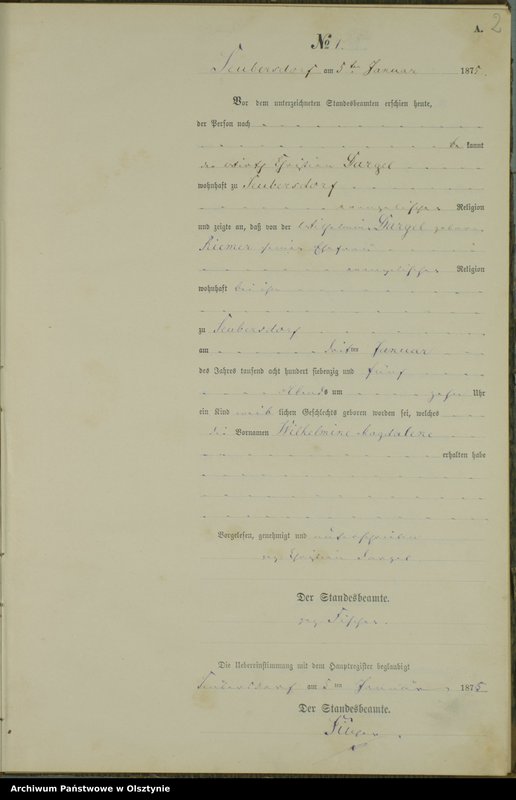 A. 2
№ 1.
Seubersdorf am 5ten Januar 1875.
Vor dem unterzeichneten Standesbeamten erschien heute,
der Person nach
be kannt
der Wirth Christian Dargel
wohnhaft zu Seubersdorf
evangelischer Religion
und zeigte an, daß von der Wilhelmine Dargel geborne
Riemer seiner Ehefrau
evangelischer Religion
wohnhaft bei ihm
zu Seubersdorf
am dritten Januar
des Jahres tausend acht hundert siebenzig und fünf
Abends um zehn Uhr
ein Kind weib lichen Geschlechts geboren worden sei, welches
die Vornamen Wilhelmine Magdalene
erhalten habe
Vorgelesen, genehmigt und unterschrieben
gez. Christian Dargel
Der Standesbeamte.
gez.
Die Uebereinstimmung mit dem Hauptregister beglaubigt
Seubersdorf am 5ten Januar 1875
Der Standesbeamte.
Archiwum Państwowe w Olsztynie